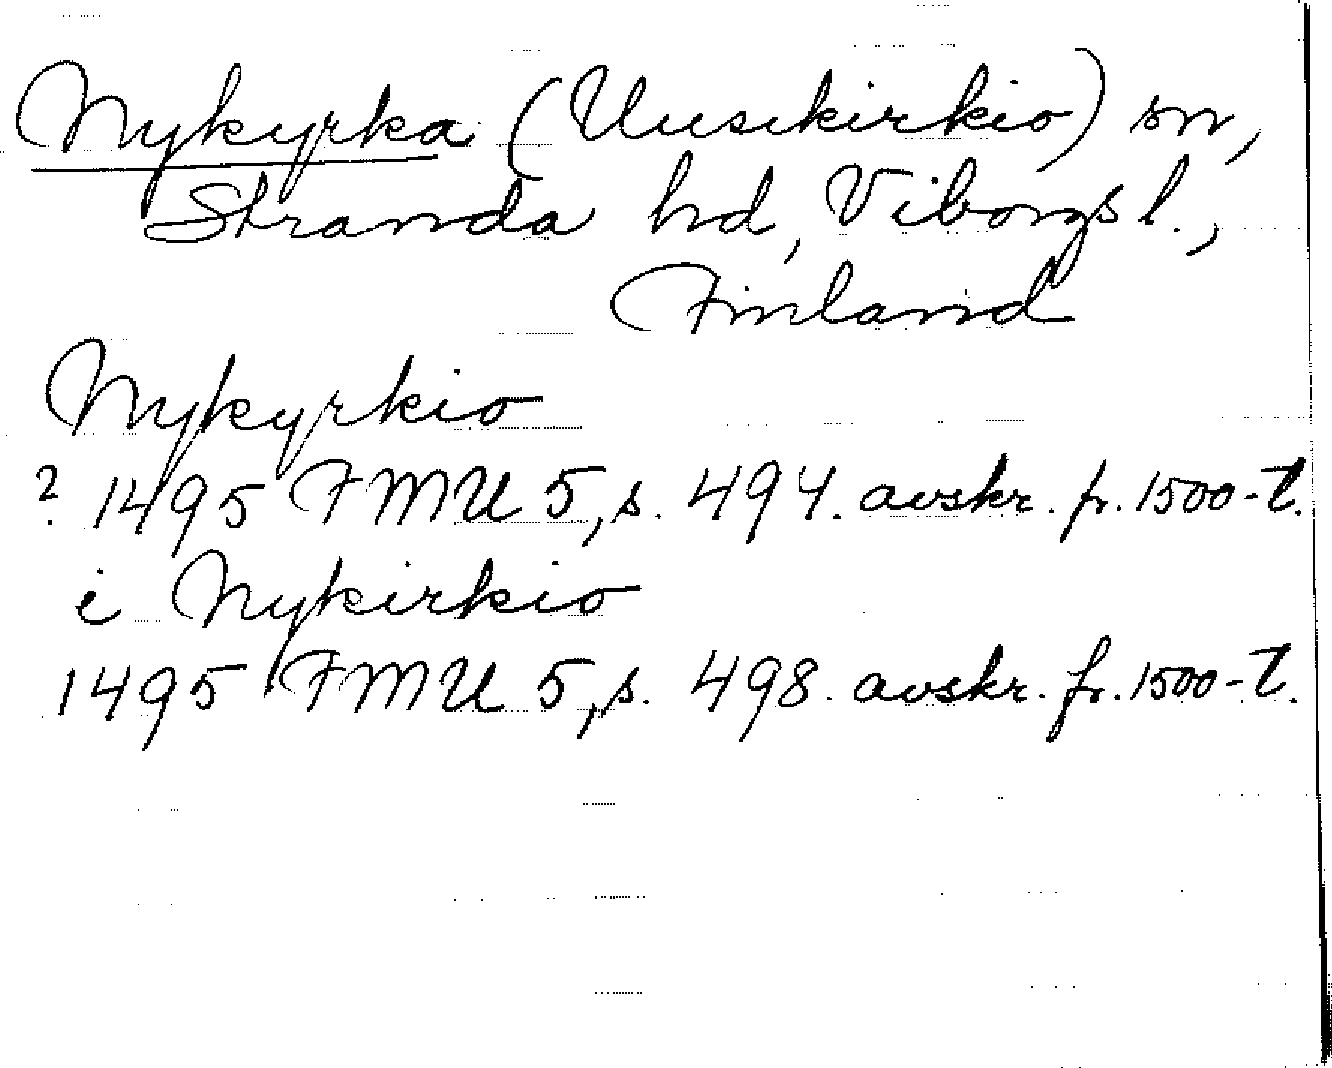 Nykyrka (Uusikirkio) sn,
Stranda hd, Viborgs l.,
Finland
Nykyrkio
? 1495 FMU 5, s. 494. avskr. fr. 1500-t.
i Nykirkio
1495 FMU 5, s. 498. avskr. fr. 1500-t.